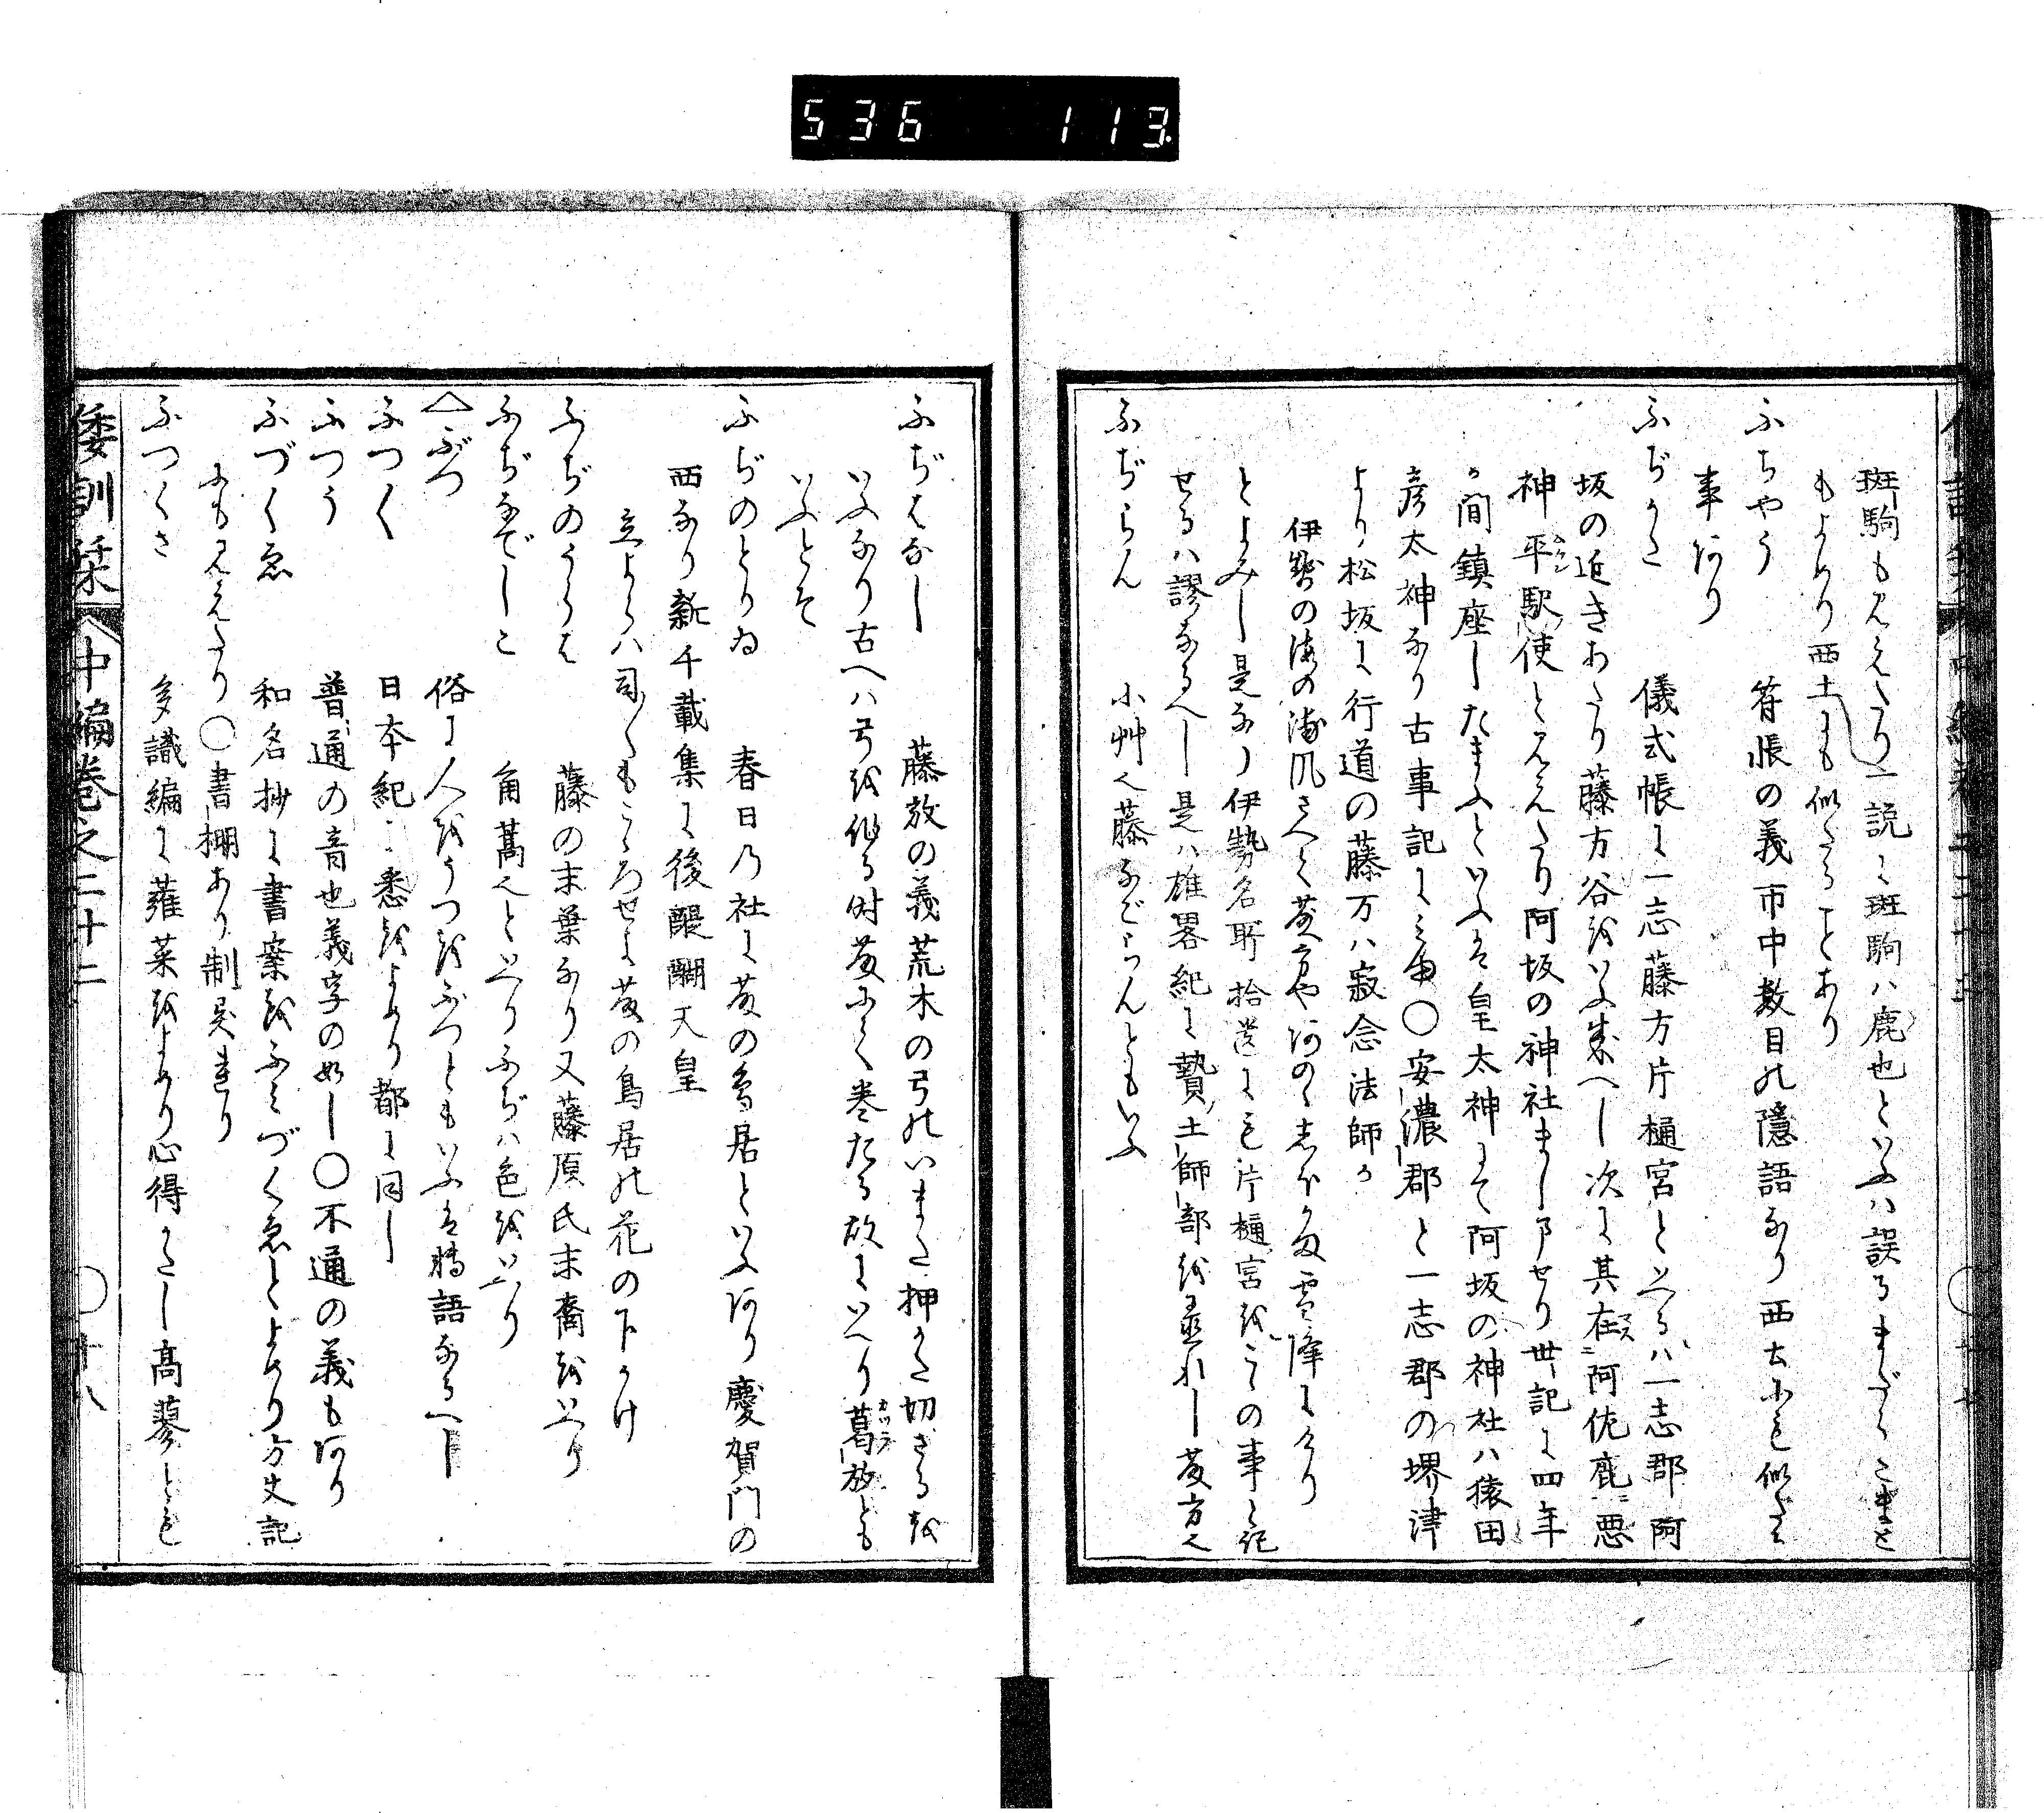 536 113
斑駒も見えたり一説に斑駒ハ鹿也といふハ誤るまだらこまと
もよめり西土にも似たることあり
ふちやう 符帳の義市中数目の隠語なり西土にも似たる
事あり
ふぢかた 儀式帳に一志藤方片樋宮と云るハ一志郡阿
坂の近きあたり藤方谷をいふ成へし次に其在阿佐鹿悪
神平駅使と見えたり阿坂の神社ましませり世記に四年
か間鎮座したまふといふは皇太神にて阿坂の神社ハ猿田
彦太神なり古事記に見ゆ〇安濃郡と一志郡の堺津
より松坂に行道の藤万ハ寂念法師か
とよみし是なり伊勢名所拾遺にも片樋宮をこゝの事と記
せるハ謬なるへし是ハ雄畧紀に贄土師部を進れし藤方也
ふぢらん 小艸也藤なでらんともいふ
ふぢはなし 藤放の義荒木の弓のいまた押かた切さるを
いふなり古へハ弓を作る時藤にて巻たる故にいへり葛放とも
いふとそ
ふぢのとりゐ 春日の社に藤の鳥居といふあり慶賀門の
西なり新千載集に後醍醐天皇
立よらハ司〳〵もこゝろせよ藤の鳥居の花の下かけ
ふぢのうらは 藤の末葉なり又藤原氏末裔をいへり
ふぢなでしこ 角蒿也といへりふぢハ色をいへり
△ぶつ 俗に人をうつをぶつともいふは轉語なるへし
ふつく 日本紀に悉をよめり都に同し
ふつう 普通の音也義字の如し〇不通の義もあり
ふづくゑ 和名抄に書案をふみづくゑとよめり方丈記
にも見えたり〇書棚あり制異なり
ふつくさ 多識編に蕹菜をよめり心得かたし高蓼とも
倭訓栞 中編巻之二十二 〇十八